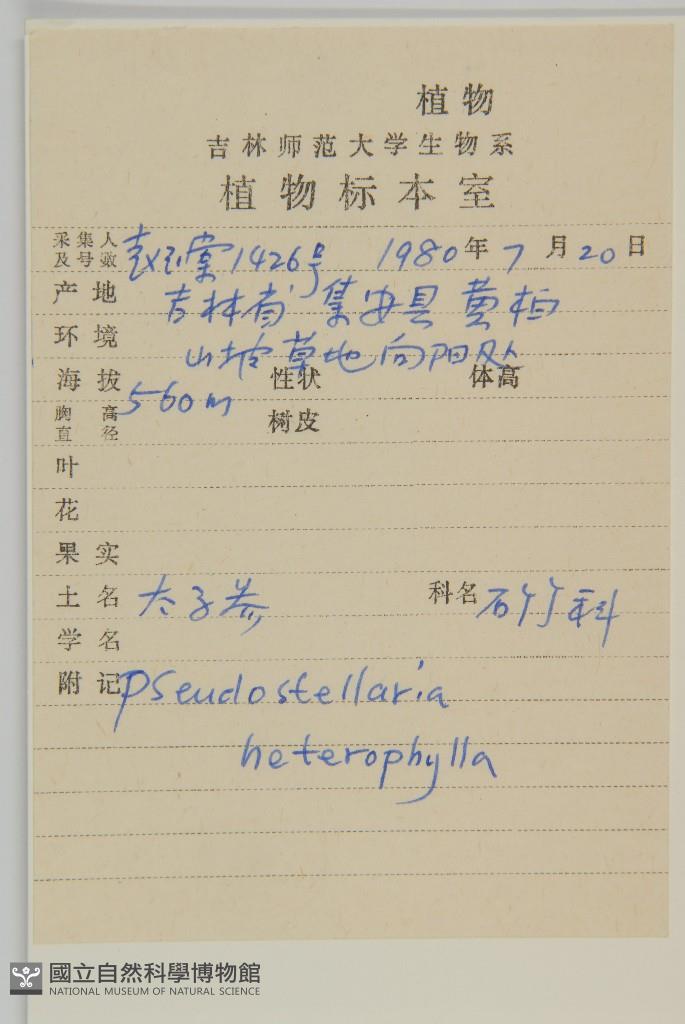 植物
吉林师范大学生物系
植物标本室
采集人及号数 赵 棠1426号 1980年7月20日
产地 吉林省 集安县 黄柏
环境 山坡草地向阳处
海拔 560m 性状 体高
胸高直径 树皮
叶
花
果实
土名 太子参 科名 石竹科
学名
附记 pseudostellaria
heterophylla
國立自然科學博物館
NATIONAL MUSEUM OF NATURAL SCIENCE